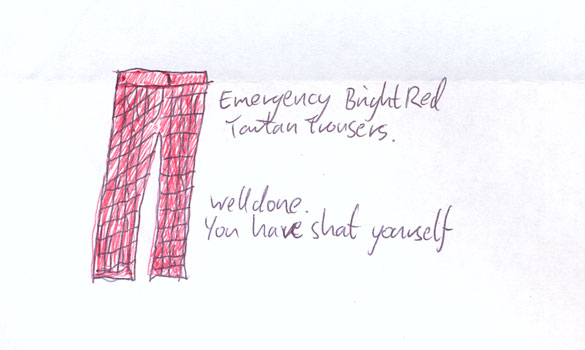 Emergency Bright Red
Tartan Trousers.
well done.
You have shat yourself